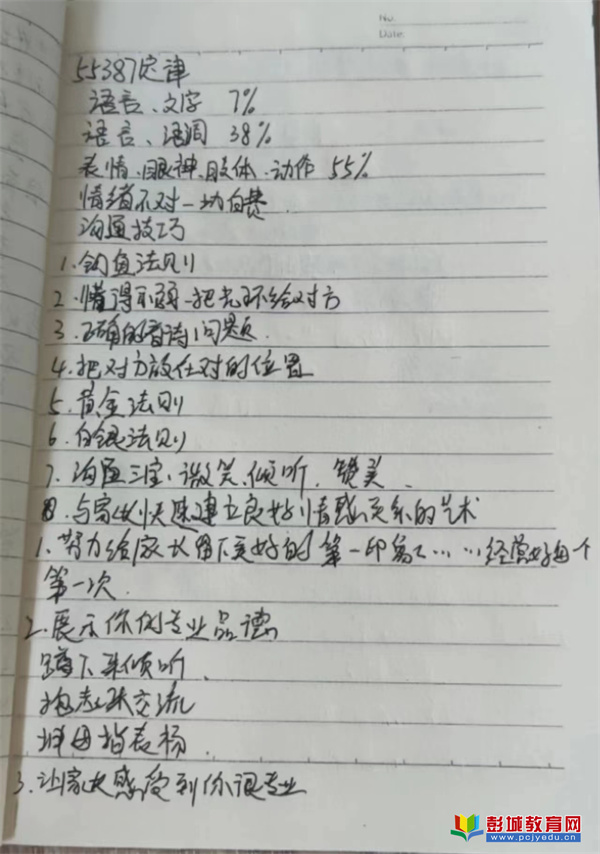 No.
Date.
55387定律
语言、文字 7%
语言、语调 38%
表情、眼神、肢体、动作 55%
情绪不对一切白费.
沟通技巧
1.钓鱼法则
2.懂得示弱-把光环给对方
3.正确的看待问题.
4.把对方放在对的位置
5.黄金法则
6.白银法则
7.沟通三宝:微笑、倾听、赞美.
8.与家长快速建立良好情感关系的艺术
1.努力给家长留下美好的第一印象……经营好每个
第一次.
2.展示你的专业品德
蹲下来倾听.
抱起来交流
拇指表扬.
3.让家长感受到你很专业
彭城教育网
www.pcjyedu.cn